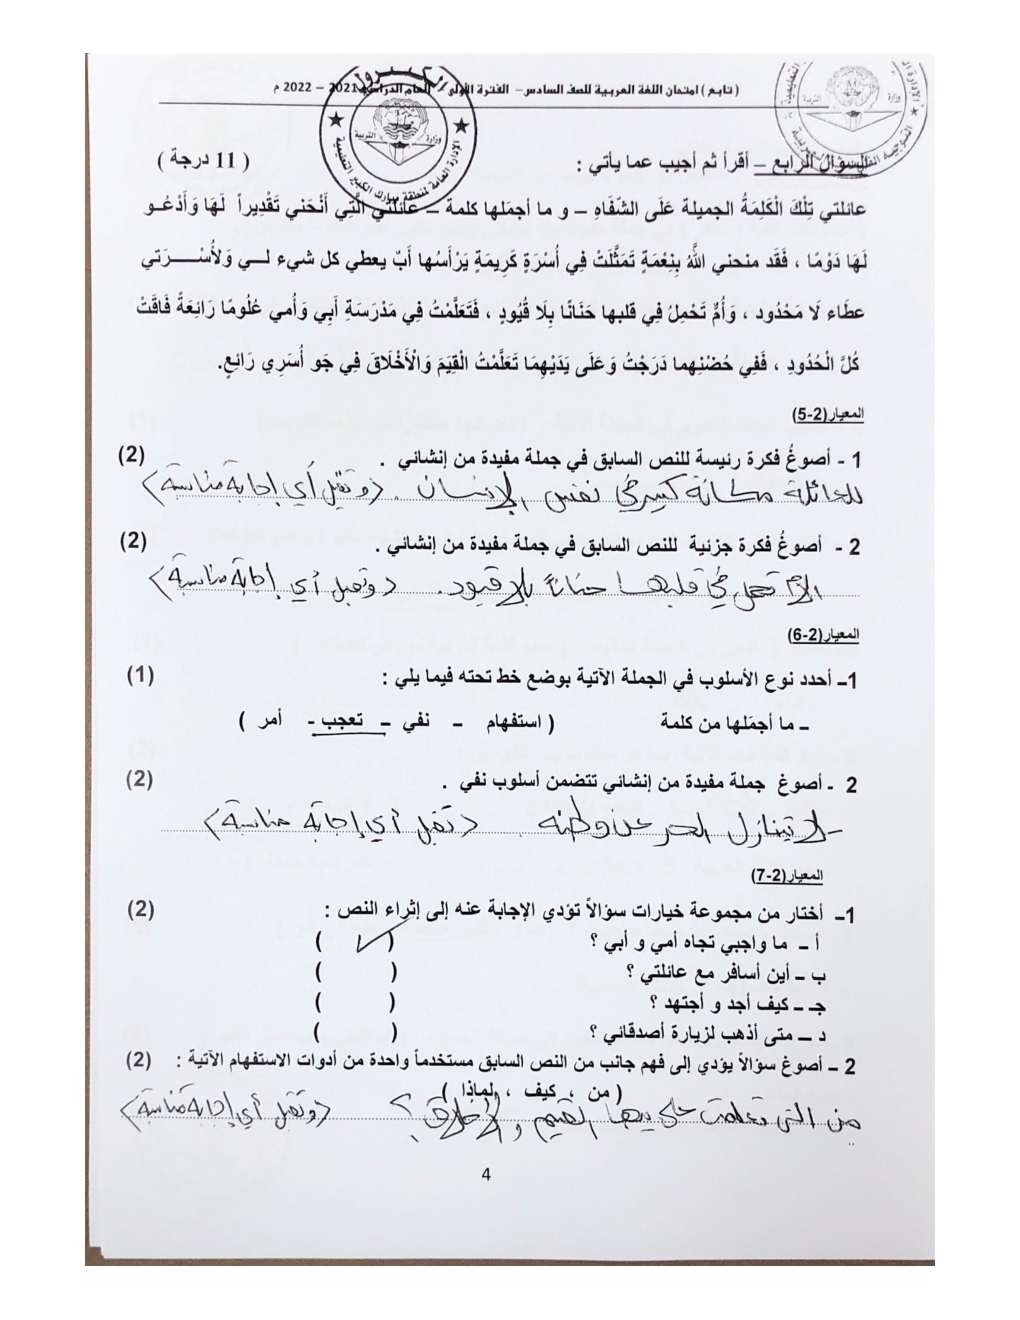 ( تابع ) امتحان اللغة العربية للصف السادس – الفترة الأولى – العام الدراسي 2021 – 2022 م
السؤال الرابع – أقرأ ثم أجيب عما يأتي : ( 11 درجة )
عائلتي تِلْكَ الْكَلِمَةُ الجميلة عَلَى الشِّفَاهِ – و ما أجمَلها كلمة – عائلتي الَّتِي أَنْحَني تَقْدِيراً لَهَا وَأَدْعُـو
لَهَا دَوْمًا ، فَقَد منحني اللَّهُ بِنِعْمَةٍ تَمَثَّلَتْ فِي أُسْرَةٍ كَرِيمَةٍ يَرْأَسُها أَبٌ يعطي كل شيء لـي وَلأُسْـرَتي
عطَاء لَا مَحْدُود ، وَأُمٌّ تَحْمِلُ فِي قلبها حَنَانًا بِلَا قُيُودٍ ، فَتَعَلَّمْتُ فِي مَدْرَسَةِ أَبِي وَأُمي عُلُومًا رَائِعَةً فَاقَتْ
كُلَّ الْحُدُودِ ، فَفِي حُضْنِهما دَرَجْتُ وَعَلَى يَدَيْهِمَا تَعَلَّمْتُ القِيَمَ وَالْأَخْلَاقَ فِي جَو أُسَرِي رَائِعٍ.
المعيار(2-5)
1 - أصوغُ فكرة رئيسة للنص السابق في جملة مفيدة من إنشائي . (2)
للعائلة مكانة كبيرة في نفس الإنسان . (وتقبل أي إجابة مناسبة)
2 - أصوغُ فكرة جزئية للنص السابق في جملة مفيدة من إنشائي . (2)
الأم تحمل في قلبها حناناً بلا قيود . (وتقبل أي إجابة مناسبة)
المعيار(2-6)
1– أحدد نوع الأسلوب في الجملة الآتية بوضع خط تحته فيما يلي : (1)
– ما أجمَلها من كلمة ( استفهام – نفي – تعجب - أمر )
2 - أصوغ جملة مفيدة من إنشائي تتضمن أسلوب نفي . (2)
- لا يتنازل الحر عن وطنه . (تقبل أي إجابة مناسبة)
المعيار(2-7)
1– أختار من مجموعة خيارات سؤالاً تؤدي الإجابة عنه إلى إثراء النص : (2)
أ – ما واجبي تجاه أمي و أبي ؟ ( ✓ )
ب – أين أسافر مع عائلتي ؟ ( )
جـ – كيف أجد و أجتهد ؟ ( )
د – متى أذهب لزيارة أصدقائي ؟ ( )
2 – أصوغ سؤالاً يؤدي إلى فهم جانب من النص السابق مستخدماً واحدة من أدوات الاستفهام الآتية : (2)
( من ، كيف ، لماذا )
من التي تعلمت على يدها القيم والأخلاق ؟ (وتقبل أي إجابة مناسبة)
4